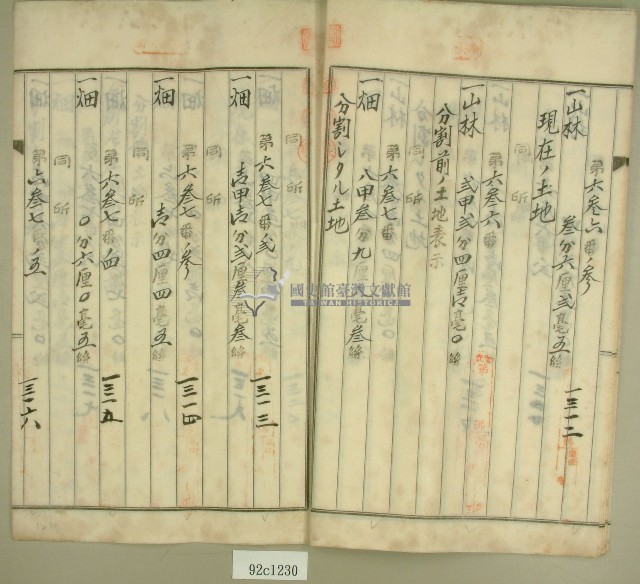 第六参六番ノ参
一山林 参分六厘弐毫五絲
一三一二
現在ノ土地
同所
第六参六番
一山林 弐甲弐分四厘壱毫〇絲
分割前ノ土地表示
同所
第六参七番
一畑 八甲参分九厘壱毫参絲
分割シタル土地
同所
第六参七番ノ弐
一三一三
一畑 壱甲壱分弐厘参毫参絲
同所
第六参七番ノ参
一三一四
一畑 壱分四厘四毫五絲
同所
第六参七番ノ四
一三一五
一畑 〇分六厘〇毫五絲
同所
第六参七番ノ五
一三一六
國史館臺灣文獻館
TAIWAN HISTORICA
92c1230